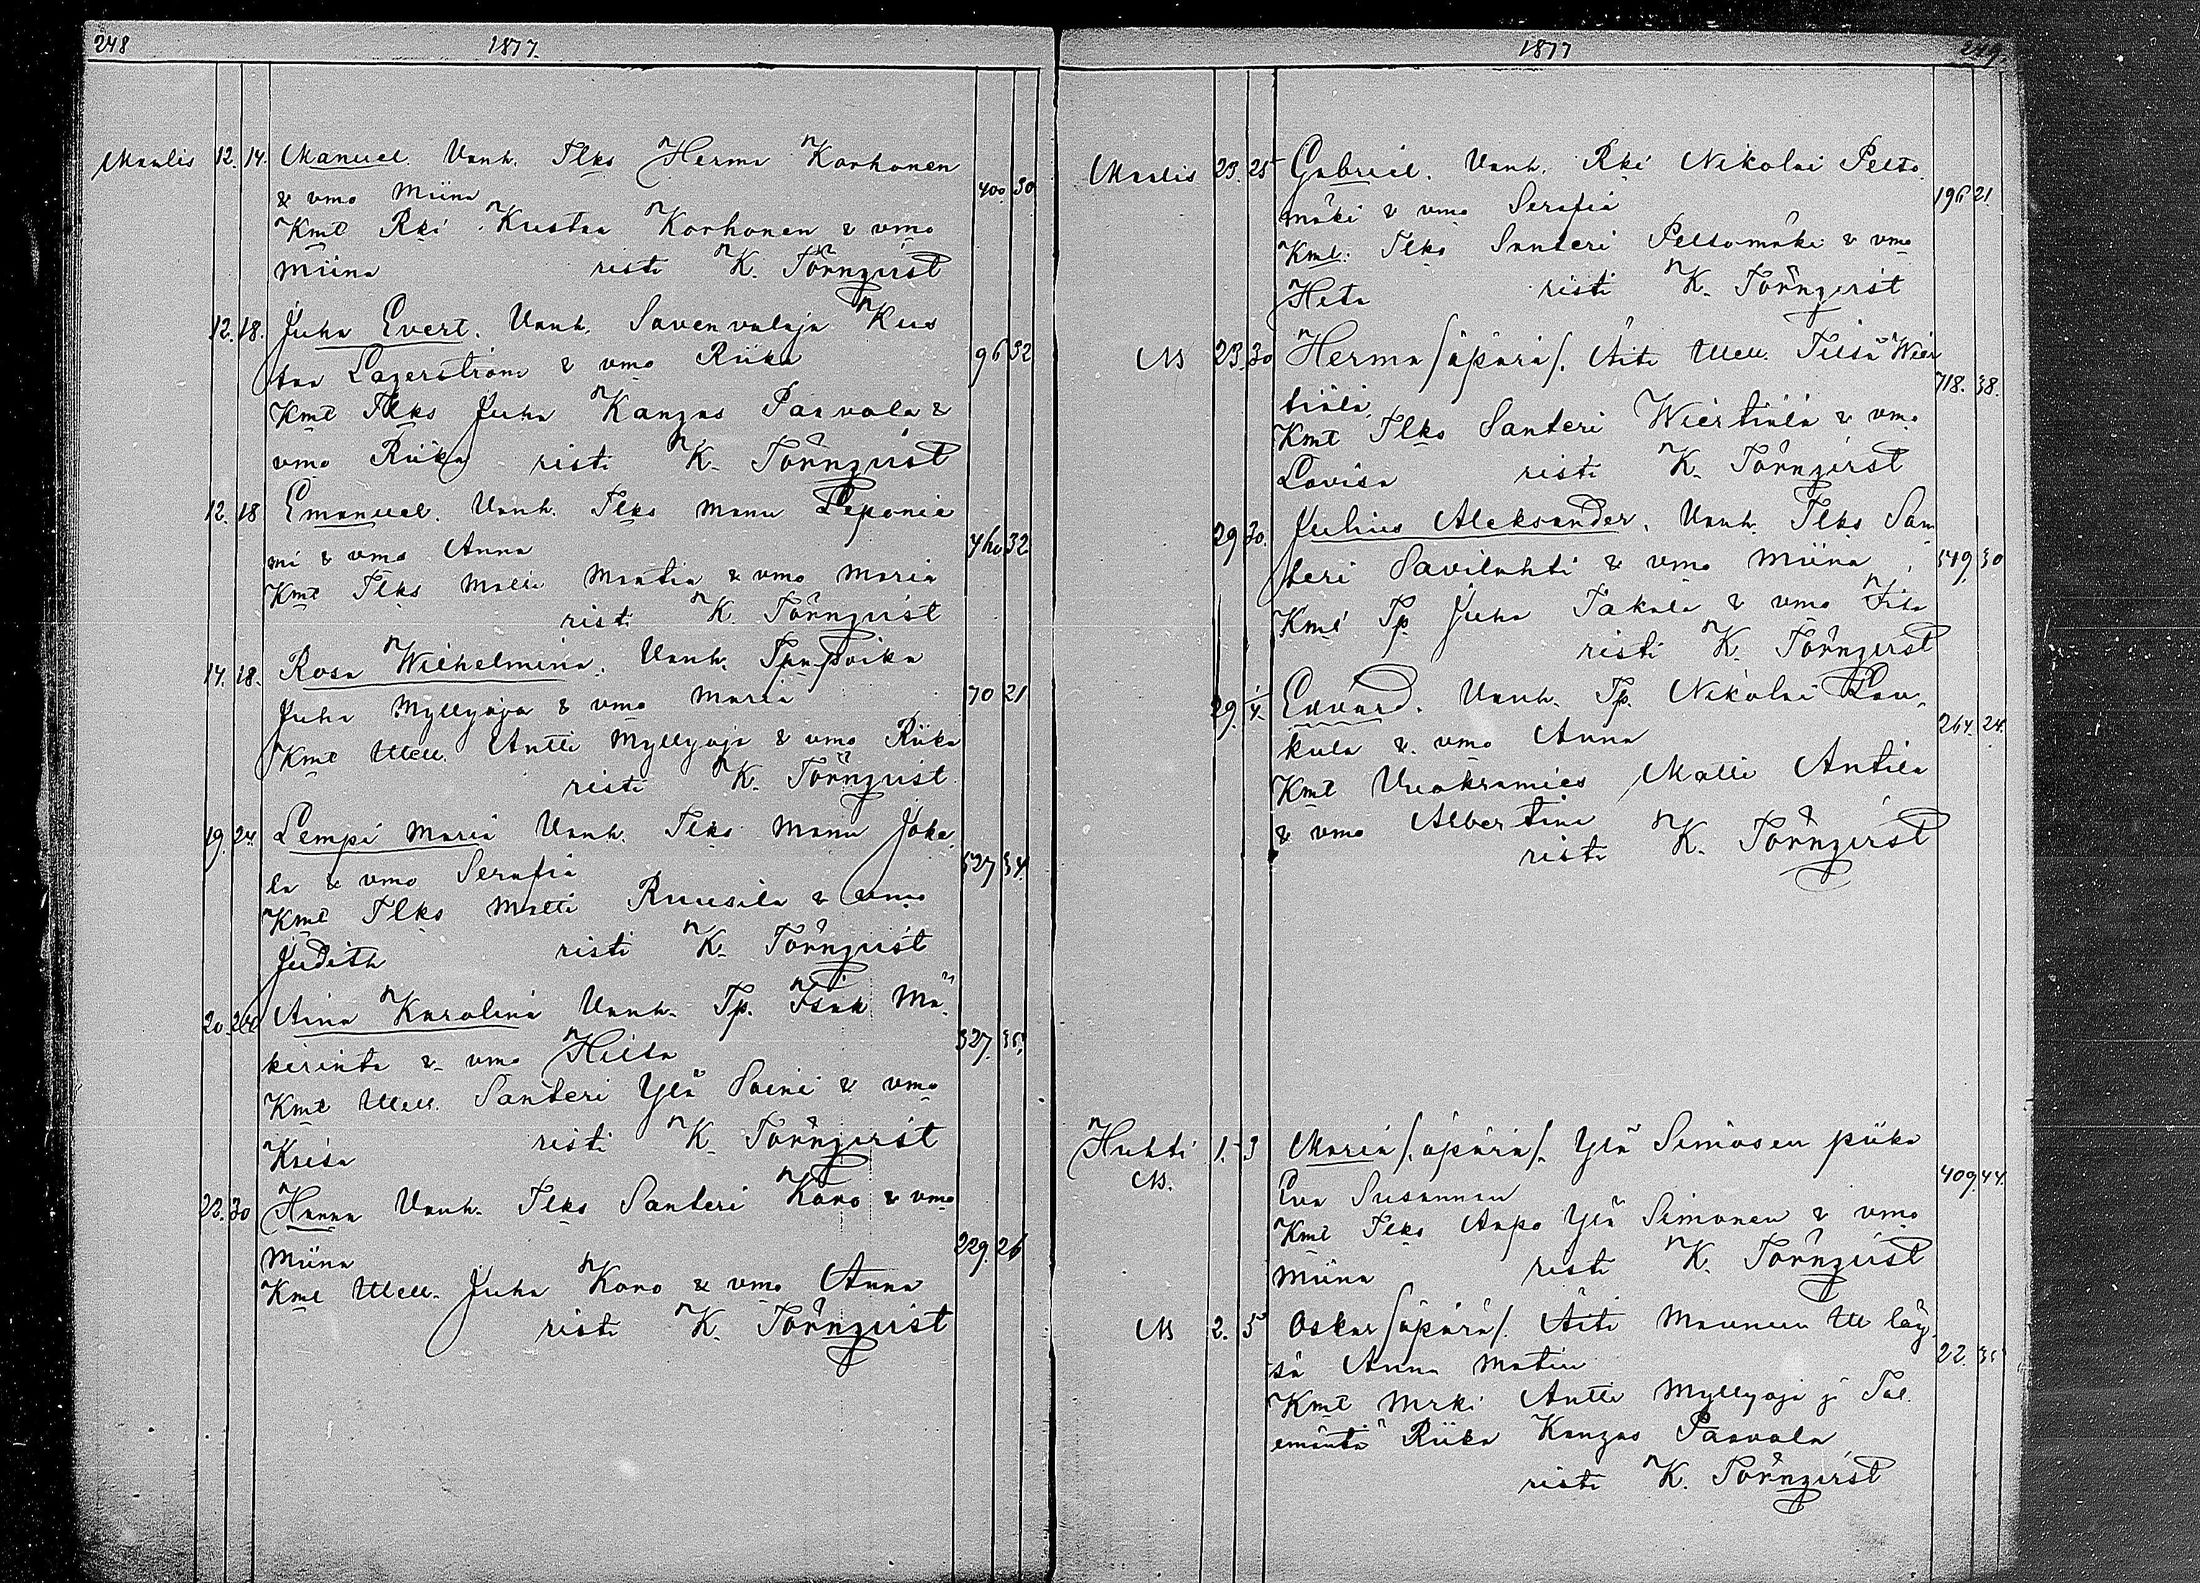 248 1877.
Maalis 12. 14. Manuel. Vanh. Tlks Herma Korhonen
& vmo Miina 400. 30
Kmt Rki Kustaa Korhonen & vmo
Miina risti K. Törnqvist
12. 18. Juha Evert. Vanh. Savenvalaja Kus
taa Lagerström & vmo Riika 96 32
Kmt Tlks Juha Kangas Paavola &
vmo Riika risti K. Törnqvist
12. 18 Emanuel. Vanh. Tlks Manu Leponie
mi & vmo Anna 32
Kmt Tlks Matti Mantia & vmo Maria
risti K. Törnqvist
14. 18. Rosa Wilhelmina. Vanh. Tpapoika
Juha Myllyoja & vmo Maria 70 21
Kmt Antti Myllyoja & vmo Riika
risti K. Törnqvist
19. 24. Lempi Maria Vanh. Tlks Manu Joke
la & vmo Serafia 527 34.
Kmt Tlks Matti Ruusila & vmo
Judith risti K. Törnqvist
20. Aina Karolina Vanh. Tp. Isak Mä
kirinta & vmo Heta 327. 35
Kmt Santeri Ylä Soini & vmo
Kaisa risti K. Törnqvist
22. 30 Hanna Vanh. Tlks Santeri Koro & vmo
Miina 229. 26
Kmt Juha Koro & vmo Anna
risti K. Törnqvist
1877 249.
Maalis 23. 25 Gabriel. Vanh. Rki Nikolai Pelto
mäki & vmo Serafia 196 21
Kmt. Tlks Santeri Peltomäki & vmo
Heta risti K. Törnqvist
N 23. 30 Herma /äpärä/. Äiti Tiisa Wier
tiälä 718. 38.
Kmt Tlks Santeri Wiertiälä & vmo
Lovisa risti K. Törnqvist
29 30. Julius Aleksander. Vanh. Tlks San
teri Savilahti & vmo Miina 549. 30
Kmt Tp. Juha Takala & vmo Fiia
risti K. Törnqvist
29. 1/4. Edvard. Vanh. Tp. Nikolai Lau
kula & vmo Anna 264. 24.
Kmt Vuokramies Matti Antila
& vmo Albertina
risti K. Törnqvist
Huhti 1. 3 Maria /äpärä/. Ylä Simosen piika
N. Eva Susannan 409. 44.
Kmt Tlks Aapo Ylä Simonen & vmo
Miina risti K. Törnqvist
N 2. 5 Oskar /äpärä/. Äiti Maunun läy
sä Anna Matin 22. 35
Kmt Mrki Antti Myllyoja j Tal.
emäntä Riika Kangas Paavola
risti K. Törnqvist